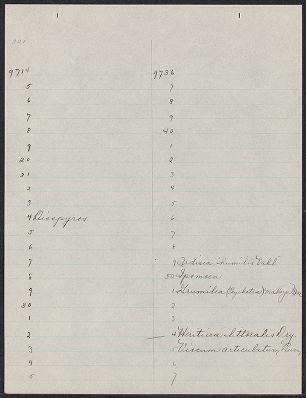 1
1
9714
5
6
7
8
9
20
21
2
3
4 Diospyros
5
6
7
8
9
30
1
2
3
4
5
9736
7
8
9
40
1
2
3
4
5
6
7
8
9 Ardisia humilis Vahl
50 Ipomoea
1 Grumilea (Psychotria)
2
3
4 Heritiera littoralis Dry.
5 Viscum articulatum Burm
6
7